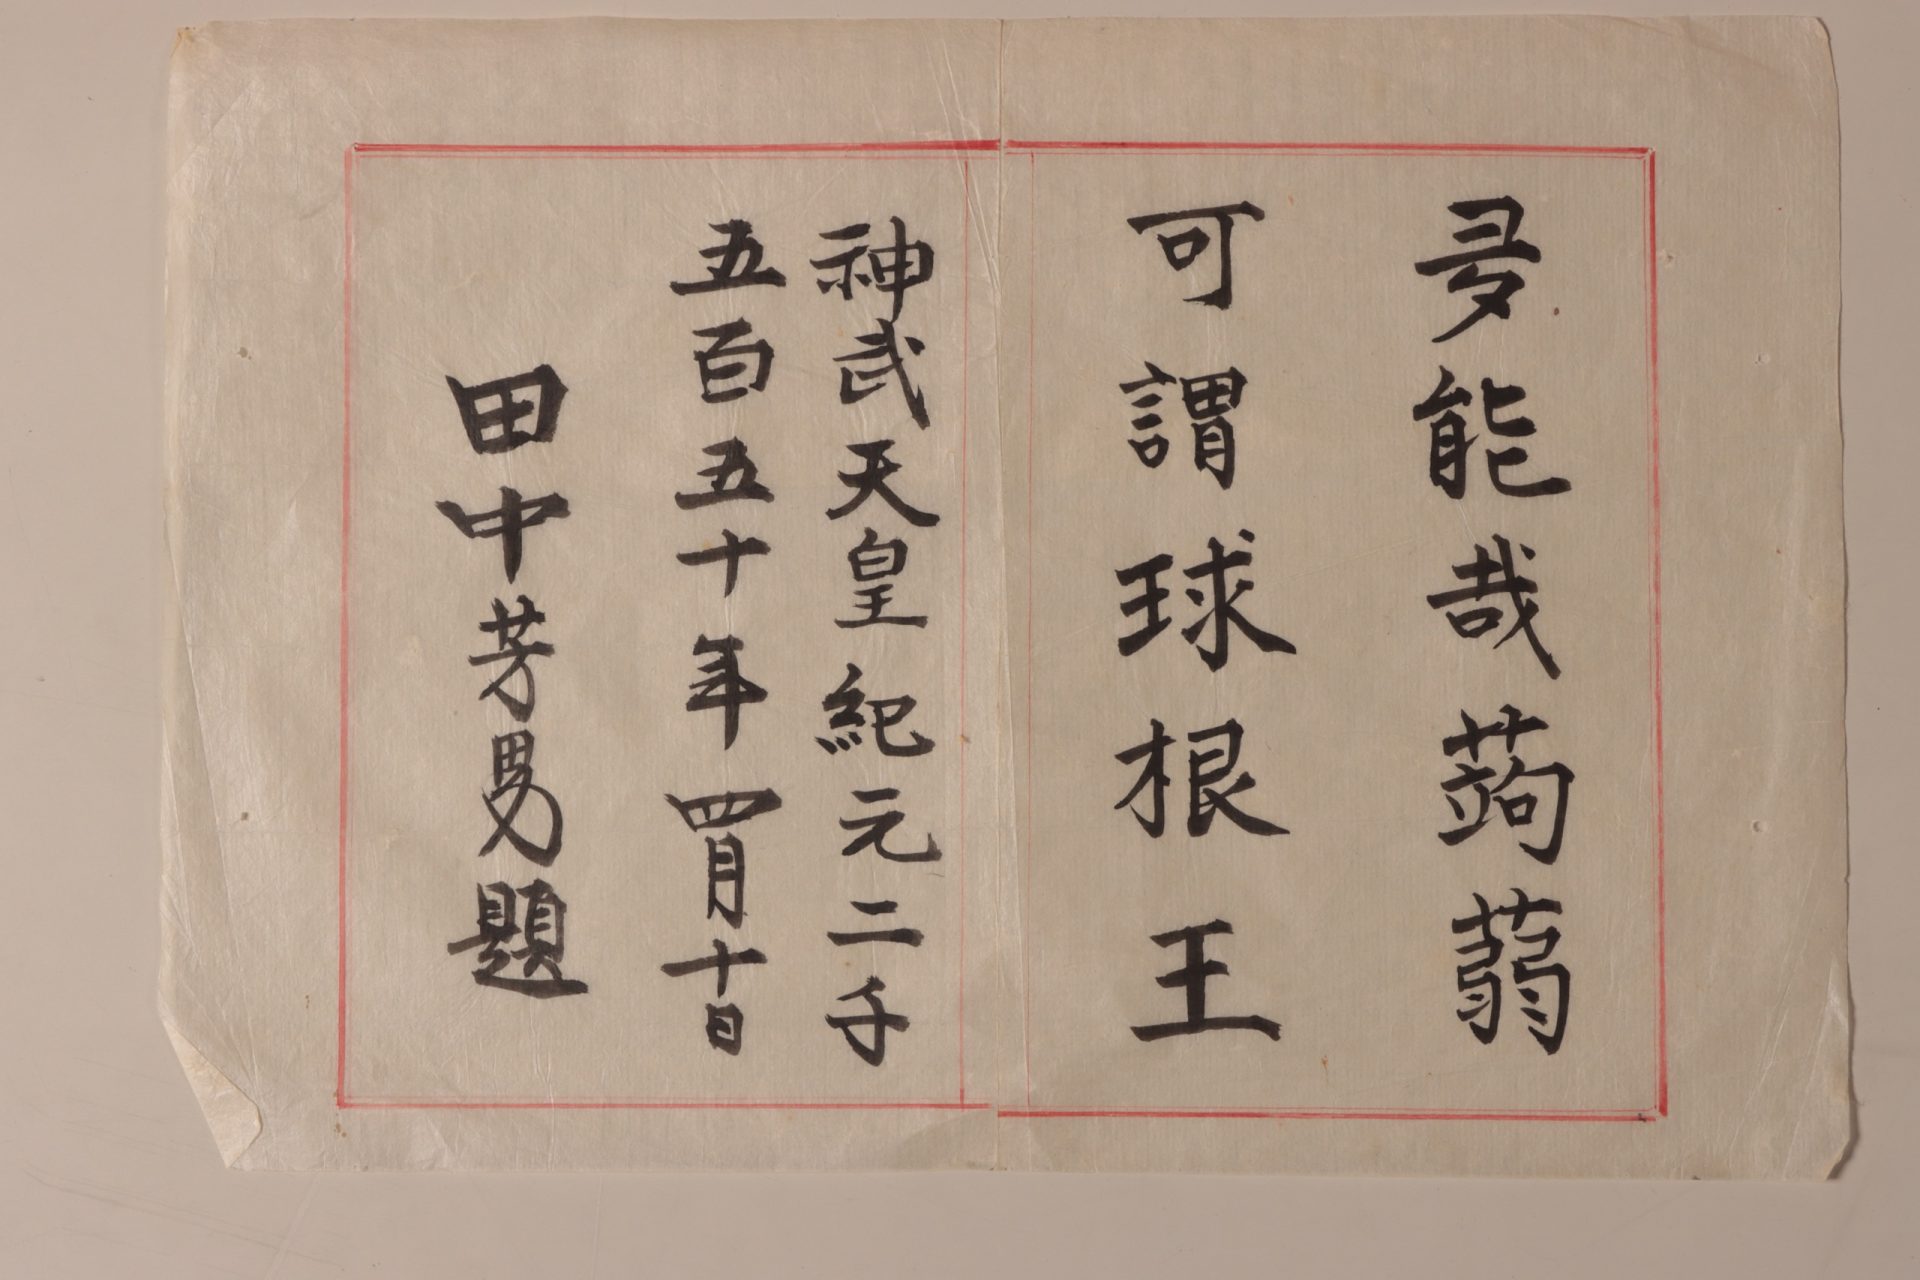 多能哉蒟蒻
可謂球根王
神武天皇紀元二千
五百五十年四月十日
田中芳男題